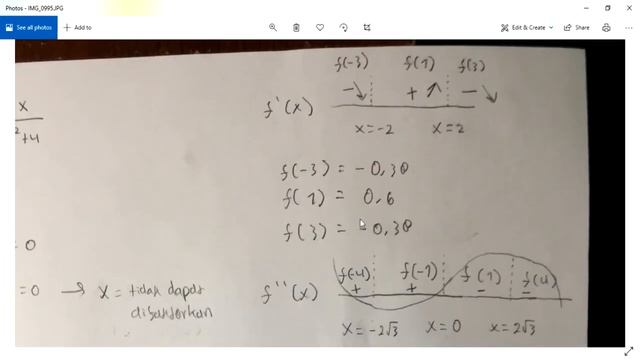 Photos - IMG_0995.JPG
See all photos
+ Add to
Edit & Create
Share
f(-3) f(1) f(3)
f'(x) - ↘ + ↗ - ↘
x=-2 x=2
x
²+4
f(-3) = -0,30
f(1) = 0,6
f(3) = -0,30
= 0
= 0 → x = tidak dapat
difaktorkan
f(-4) f(-1) f(1) f(4)
f''(x) + + - -
x=-2√3 x=0 x=2√3